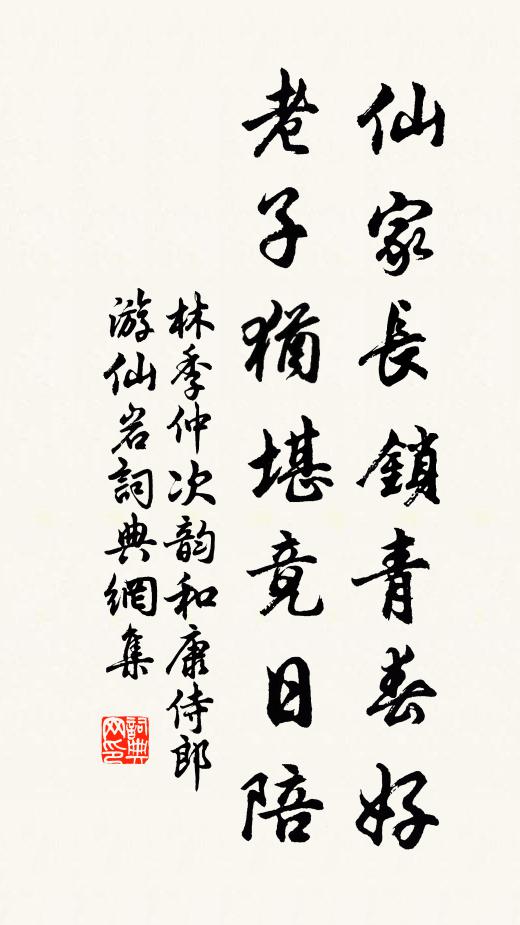 仙家長鎖青春好
老子猶堪竟日陪
林季仲次韵和康侍郎
游仙岩詞典網集
詞典
网印